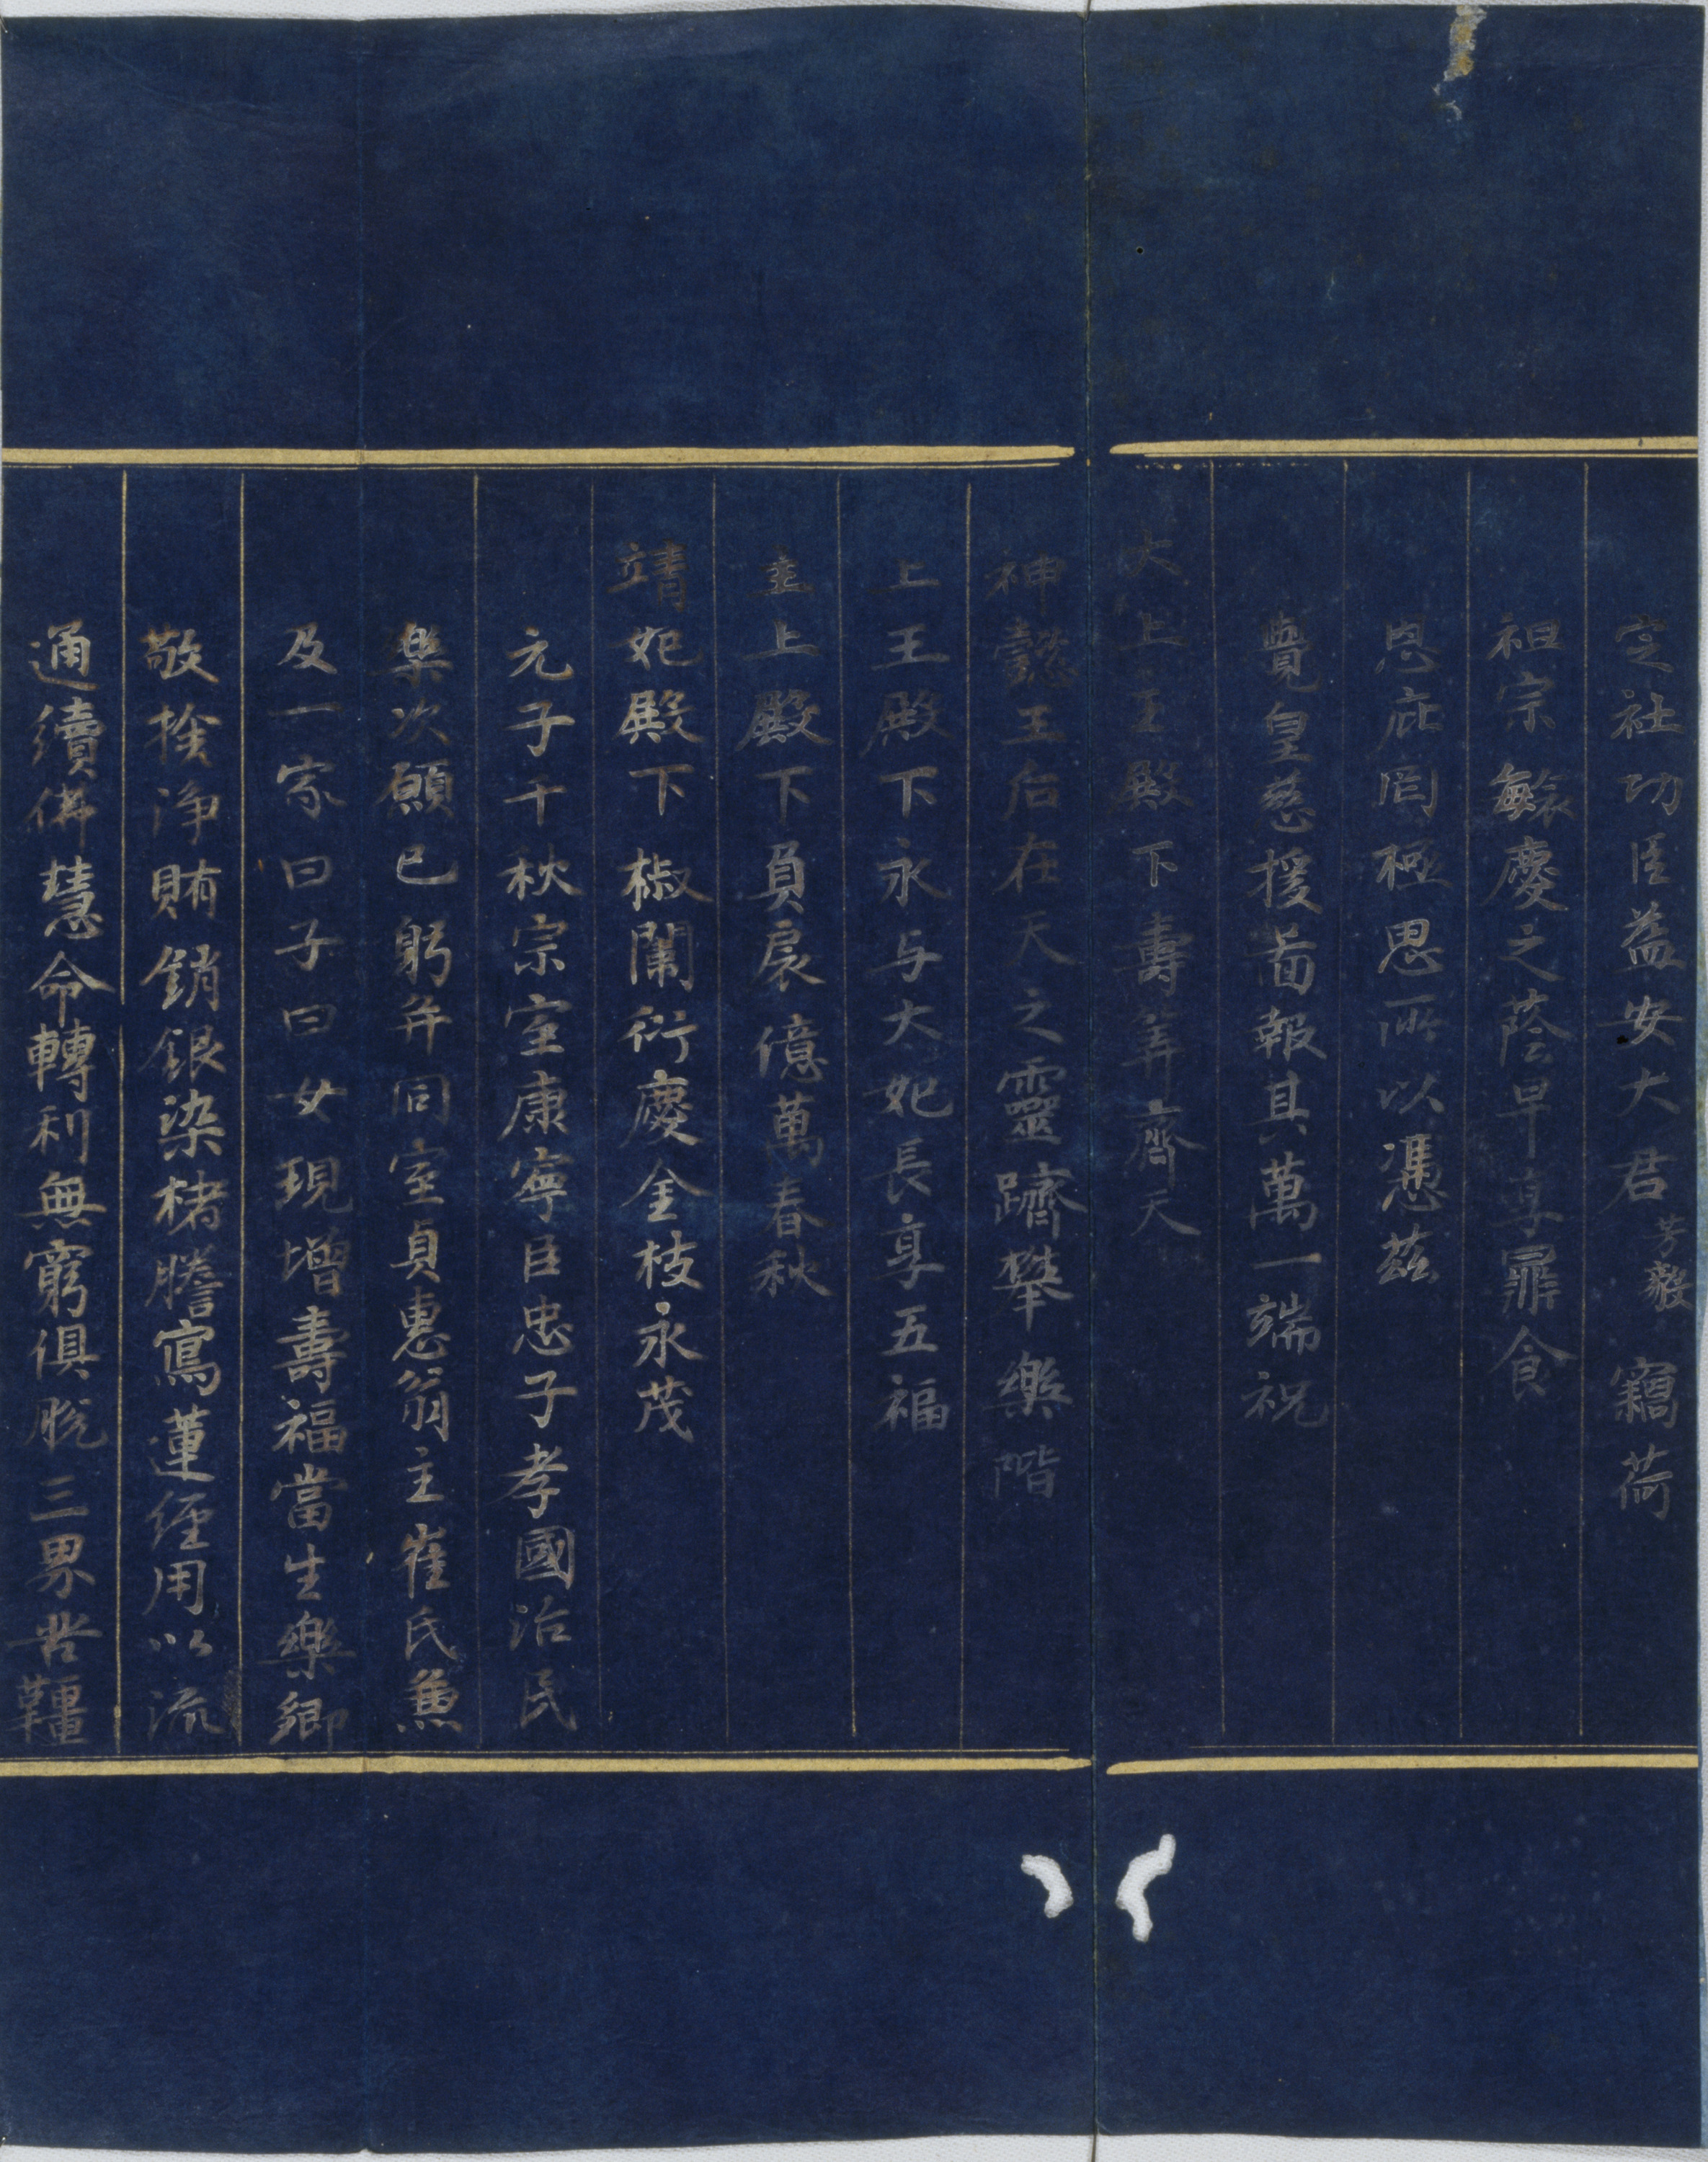 定社功臣益安大君芳毅竊荷
祖宗毓慶之蔭早享鼎食
恩庇罔極思所以憑玆
覺皇慈援啚報其萬一端祝
大上王殿下壽筭齊天
神懿王后在天之靈躋攀樂階
上王殿下永与大妃長享五福
主上殿下負扆億萬春秋
靖妃殿下椒闈衍慶金枝永茂
元子千秋宗室康寧臣忠子孝國治民
樂次願已躬弁同室貞惠翁主崔氏兼
及一家曰子曰女現增壽福當生樂鄉
敬捨淨賄銷銀染楮謄寫蓮經用以流
通續佛慧命轉利無窮俱脫三界苦韁